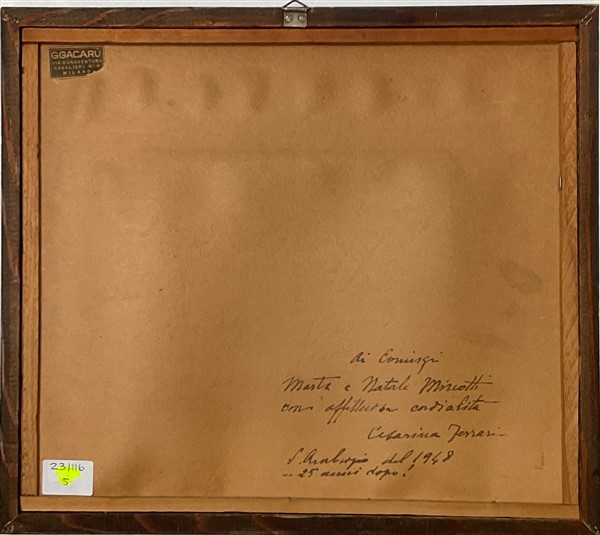 GGACARÙ
VIA BONAVENTURA
CAVALIERI N° 6
MILANO
Ai Coniugi
Marta e Natale
con affettuosa cordialità
Cesarina Ferrari
S. Ambrogio del 1948
.. 25 anni dopo!
23/116
5